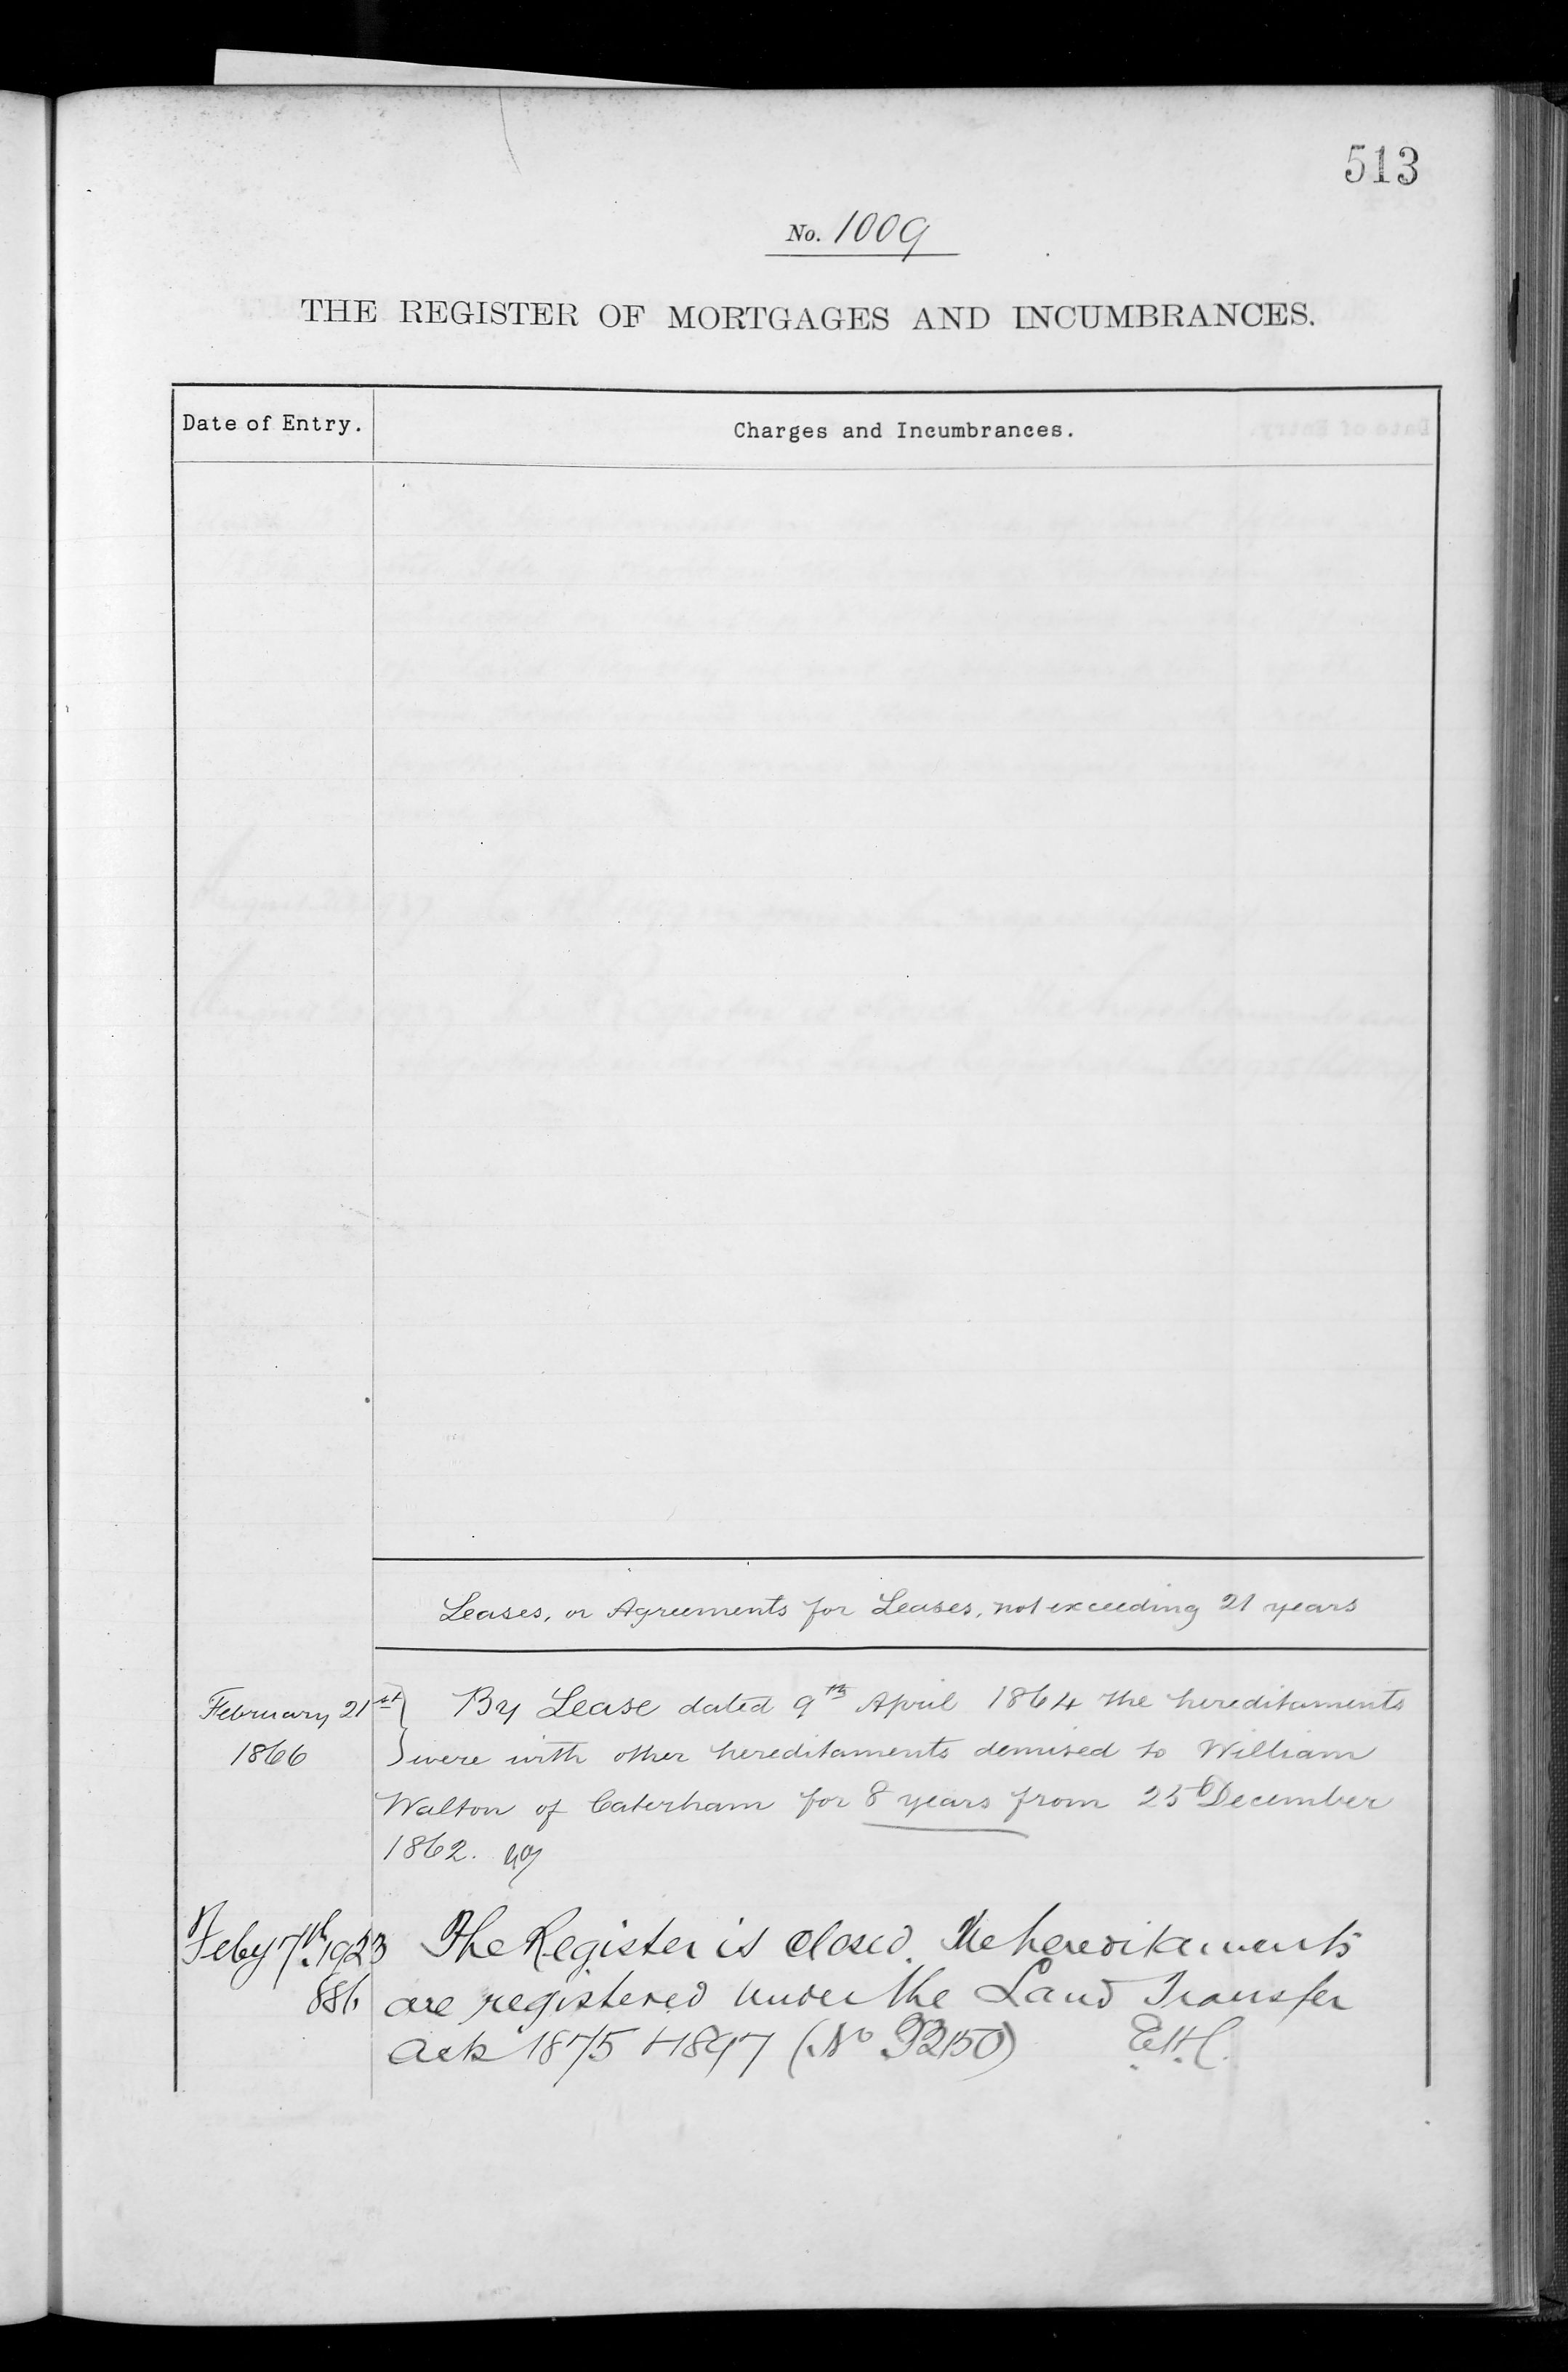 513
No. 1009
THE REGISTER OF MORTGAGES AND INCUMBRANCES.
Date of Entry.
Charges and Incumbrances.
Leases, or Agreements for Leases, not exceeding 21 years
February 21st By Lease dated 9th April 1864 the hereditaments
1866 were with other hereditaments demised to William
Walton of Caterham for 8 years from 25th December
1862.
Feby 7th 1923 The Register is closed. The hereditaments
are registered under the Land Transfer
Acts 1875 + 1897 (No